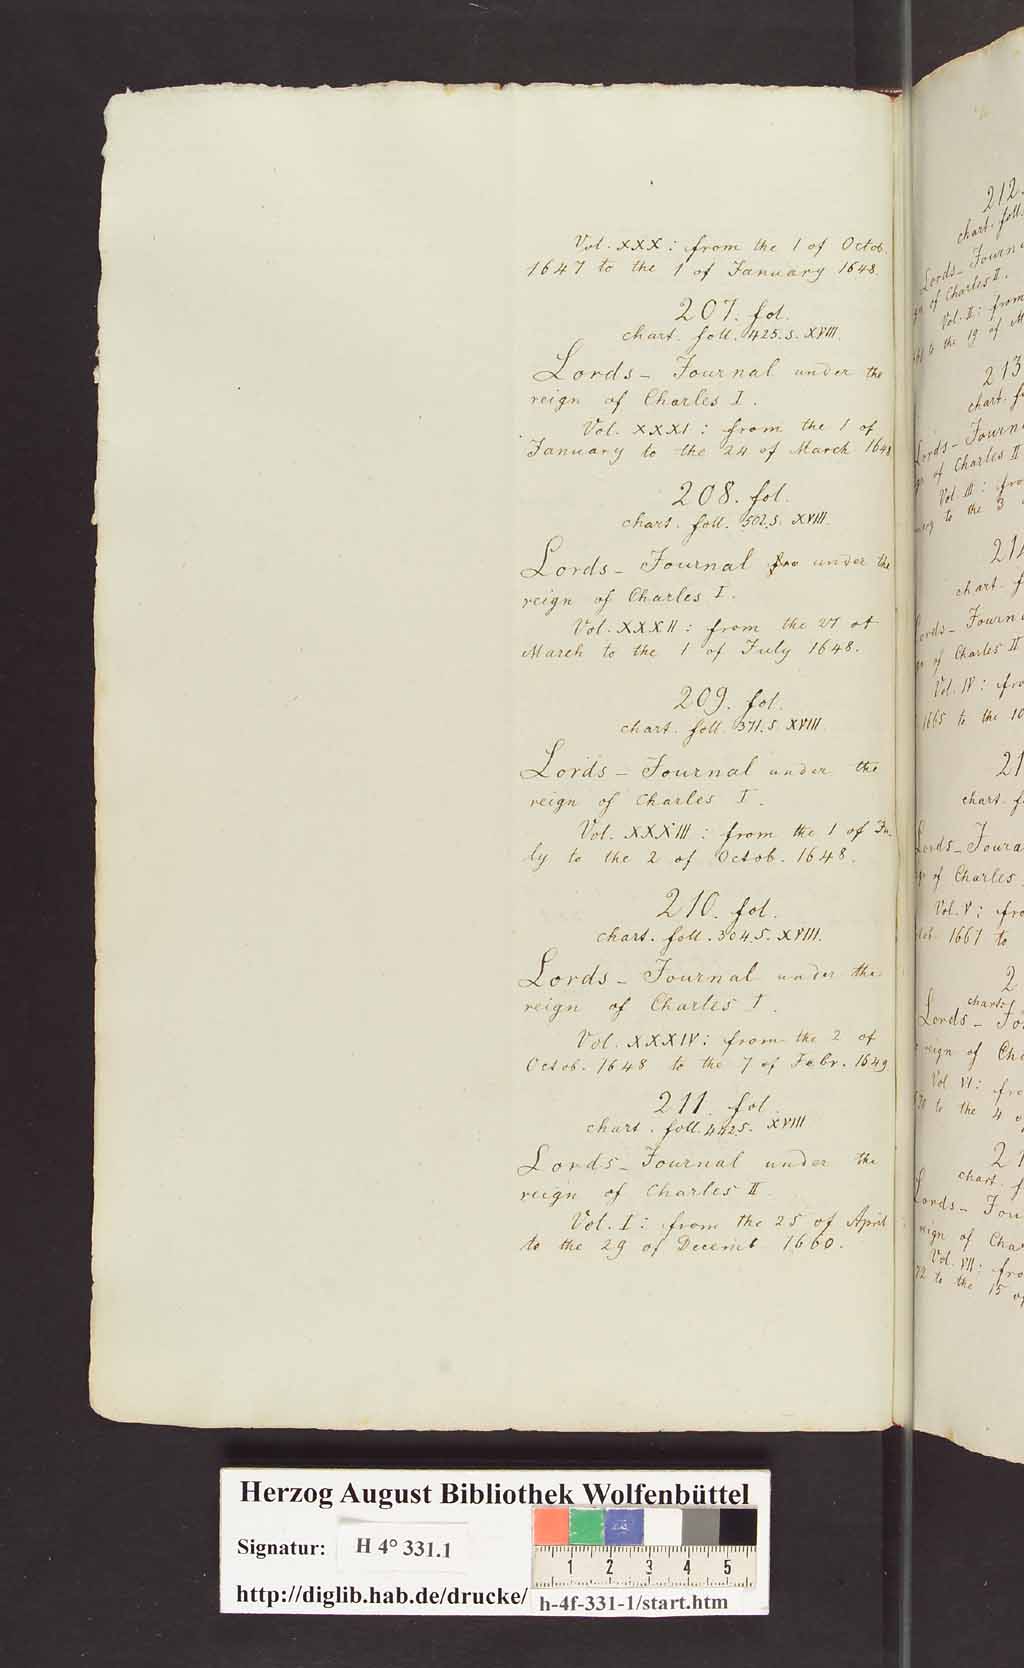 Vol. XXX : from the 1 of Octob.
1647 to the 1 of January 1648.
207. fol.
chart. foll. 425. s. XVIII.
Lords - Journal under the
reign of Charles I.
Vol. XXXI : from the 1 of
January to the 24 of March 1648
208. fol.
chart. foll. 502. s. XVIII.
Lords - Journal fro under the
reign of Charles I.
Vol. XXXII : from the 27 of
March to the 1 of July 1648.
209. fol.
chart. foll. 371. s. XVIII.
Lords - Journal under the
reign of Charles I.
Vol. XXXIII : from the 1 of Ju-
ly to the 2 of Octob. 1648.
210. fol.
chart. foll. 304. s. XVIII.
Lords - Journal under the
reign of Charles I.
Vol. XXXIV : from the 2 of
Octob. 1648 to the 7 of Febr. 1649
211. fol
chart. foll. 442 s. XVIII
Lords - Journal under the
reign of Charles II.
Vol. I : from the 25 of April
to the 29 of Decemb 1660.
212.
chart. foll.
Lords - Journ
of Charles II.
Vol. II : from
to the 19 of M
213
chart. f
Lords - Journ
of Charles II
Vol. III : fro
to the 3
21
chart. f
Lords - Journ
of Charles II
Vol. IV : fro
1665 to the 10
21
chart. f
Lords - Journ
of Charles
Vol. V : fro
1667 to
2
chart. f
Lords - Jo
reign of Cha
Vol VI : fro
to the 4 o
2
chart. f
Lords - Jou
reign of Char
Vol. VII : fro
72 to the 15 of
Herzog August Bibliothek Wolfenbüttel
Signatur: H 4° 331.1
1 2 3 4 5
http://diglib.hab.de/drucke/ h-4f-331-1/start.htm